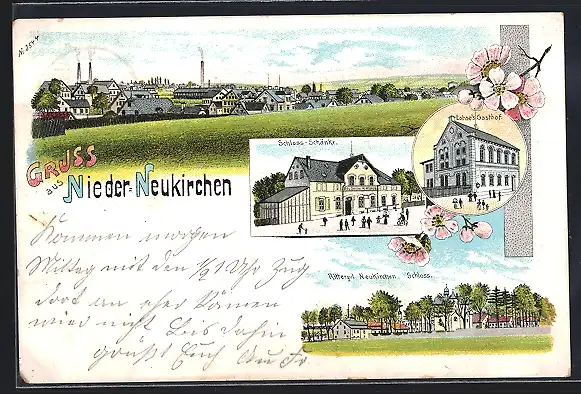 N. 3544
Gruss
aus
Nieder-Neukirchen
Schloss-Schänke.
Lohse's Gasthof.
Ritterg.t. Neukirchen. Schloss.
Kommen morgen
Mittag mit den ½1 Uhr Zug
dort an eher können
wir nicht bis dahin
grüßt Euch